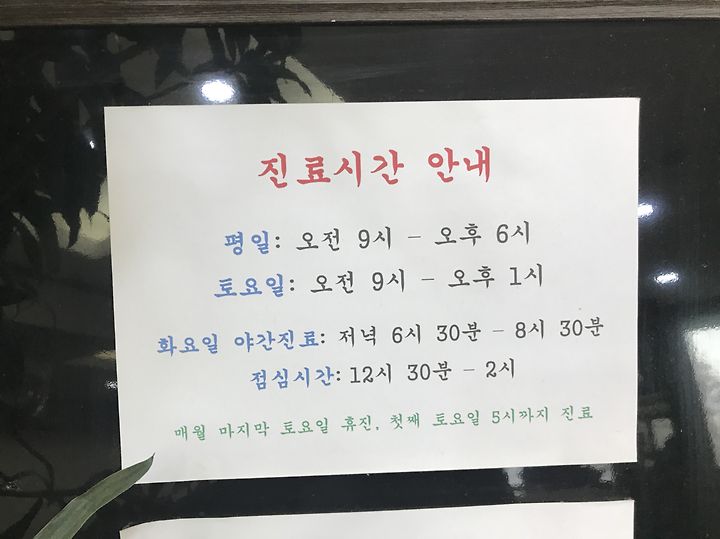 진료시간 안내
평일: 오전 9시 - 오후 6시
토요일: 오전 9시 - 오후 1시
화요일 야간진료: 저녁 6시 30분 - 8시 30분
점심시간: 12시 30분 - 2시
매월 마지막 토요일 휴진, 첫째 토요일 5시까지 진료